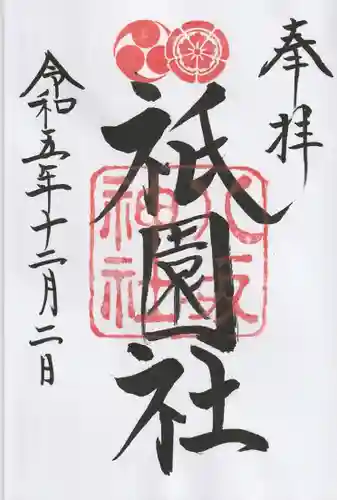 奉拝
祇園社
八坂神社
令和五年十二月二日